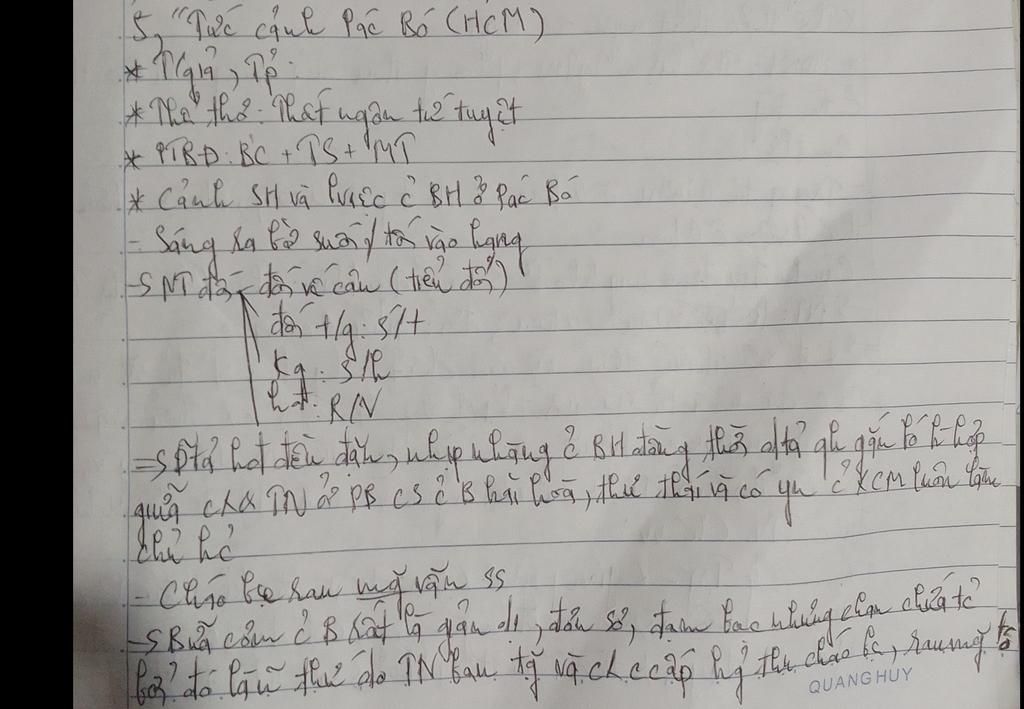 5, "Tức cảnh Pác Bó (HCM)
* T/giả, Tp̉:
* Thể thơ: Thất ngôn tứ tuyệt
* PTBĐ: BC + TS + MT
* Cảnh SH và lviệc ̉c BH ở Pác Bó
- Sáng ra bờ suối / tối vào hang
-> NT đối - đối vế câu (tiểu đối)
đối t/g: s/t
kg: S/h
hđ: R/V
-> Đtả hđ đều đặn, nhịp nhàng ̉c BH đồng thời dtả qh gắn bó h-hợp
giữa c/ng TN ở PB CS ̉c B hài hoà, thư thái và có yn ̉c KCM luôn làm
chủ hc̉
- Cháo bẹ rau măng vẫn SS
-> Bữa cơm ̉c B rất là giản dị, đơn sơ, đạm bạc nhưng chan chứa tc̉
bởi đó là thứ do TN ban tặng và cung cấp hg̉ như cháo bẹ, rau măng
QUANG HUY